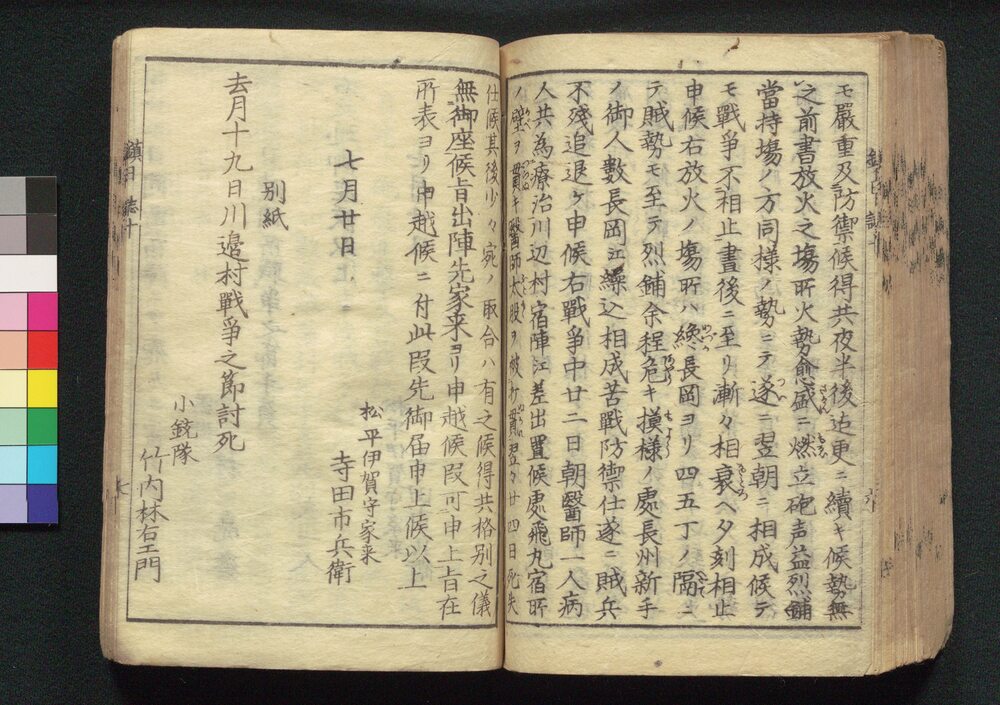 モ嚴重及防禦候得共夜半後迄更ニ續キ候勢無
之前書放火之場所火勢愈盛ニ燃立砲声益烈鋪
當持場ノ方同様ノ勢ニテ遂ニ翌朝ニ相成候テ
モ戰爭不相止晝後ニ至リ漸々相衰ヘ夕刻相止
申候右放火ノ場所ハ纔長岡ヨリ四五丁ノ隔ニ
テ賊勢モ至テ烈鋪余程危キ摸様ノ處長州新手
ノ御人数長岡江繰込相成苦戰防禦仕遂ニ賊兵
不残追退ケ申候右戰爭中廿二日朝醫師一人病
人共為療治川辺村宿陣江差出置候處飛丸宿所
ノ壁ヲ貫キ醫師太股ヲ被打貫翌々廿四日死失
仕候其後少々宛ノ取合ハ有之候得共格別之儀
無御座候旨出陣先家来ヨリ申越候段可申上旨在
所表ヨリ申越候ニ付此段先御届申上候以上
七月廿日
松平伊賀守家来
寺田市兵衛
別紙
去月十九日川邉村戰爭之節討死
小銃隊
竹内林右エ門
鎮日誌十